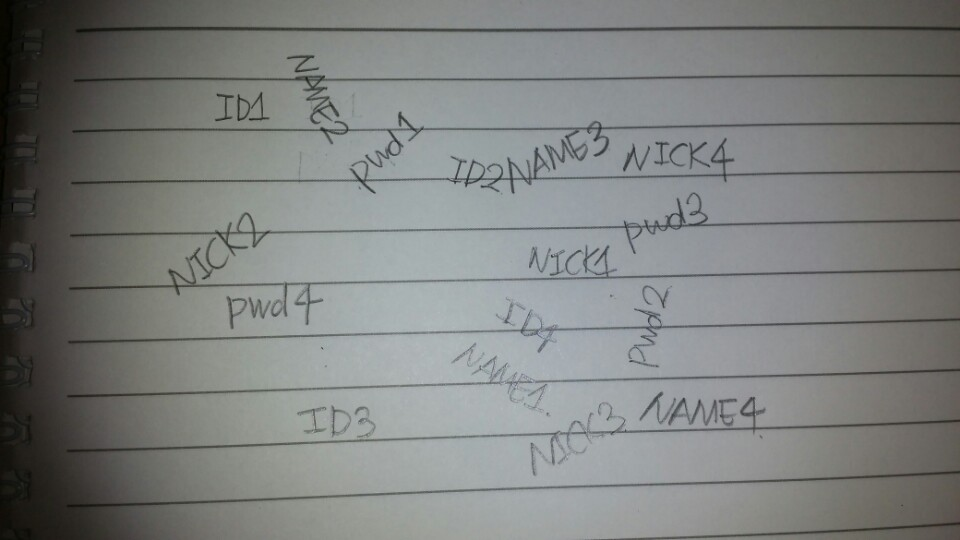 ID1
NAME2
pwd1
ID2 NAME3 NICK4
NICK2
pwd3
NICK1
pwd4
ID4
pwd2
NAME1.
ID3
NICK3
NAME4